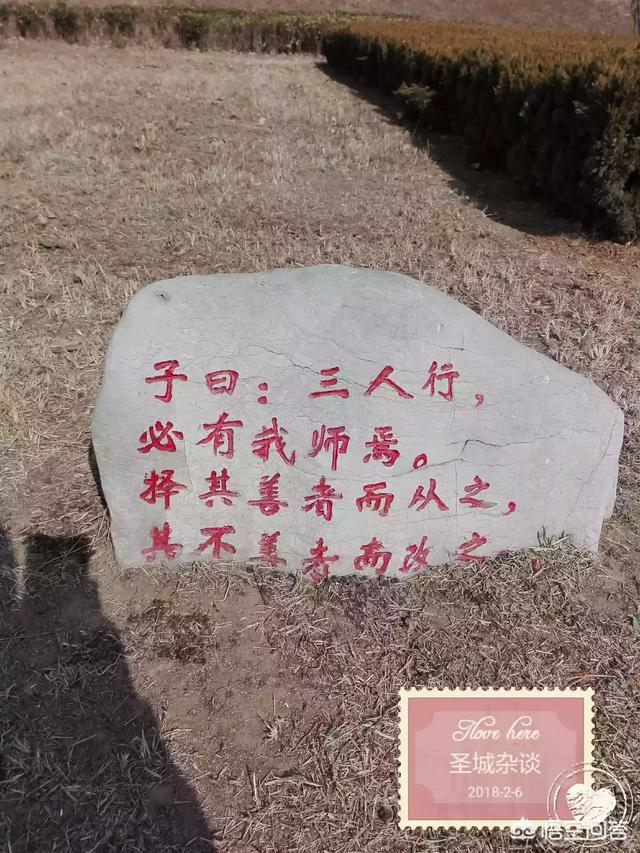 子曰：三人行，
必有我师焉。
择其善者而从之，
其不善者而改之
Ilove here
圣城杂谈
2018-2-6
悟空问答